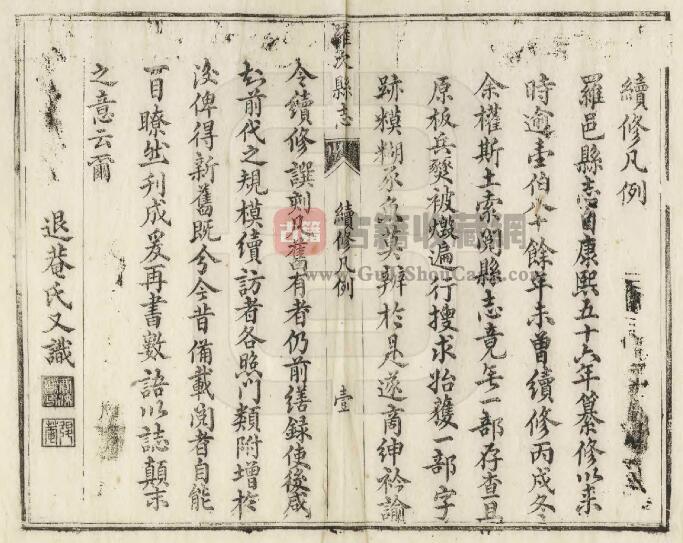 續修凡例
羅邑縣志自康熙五十六年纂修以來
時逾壹伯八十餘年未曾續修丙戌冬
余權斯土索閱縣志竟無一部存查且
原板兵燹被燬遍行搜求始獲一部字
跡糢糊豕魚莫辨於是遂商紳衿諭
羅次縣志
續修凡例
壹
令續修譔刻凡舊有者仍前繕錄使後咸
知前代之規模續訪者各照門類附增於
後俾得新舊既分今昔備載閱者自能
一目瞭然刊成爰再書數語以誌顛末
之意云爾
退菴氏又識
古籍收藏网
www.GuJiShouCang.com
古籍